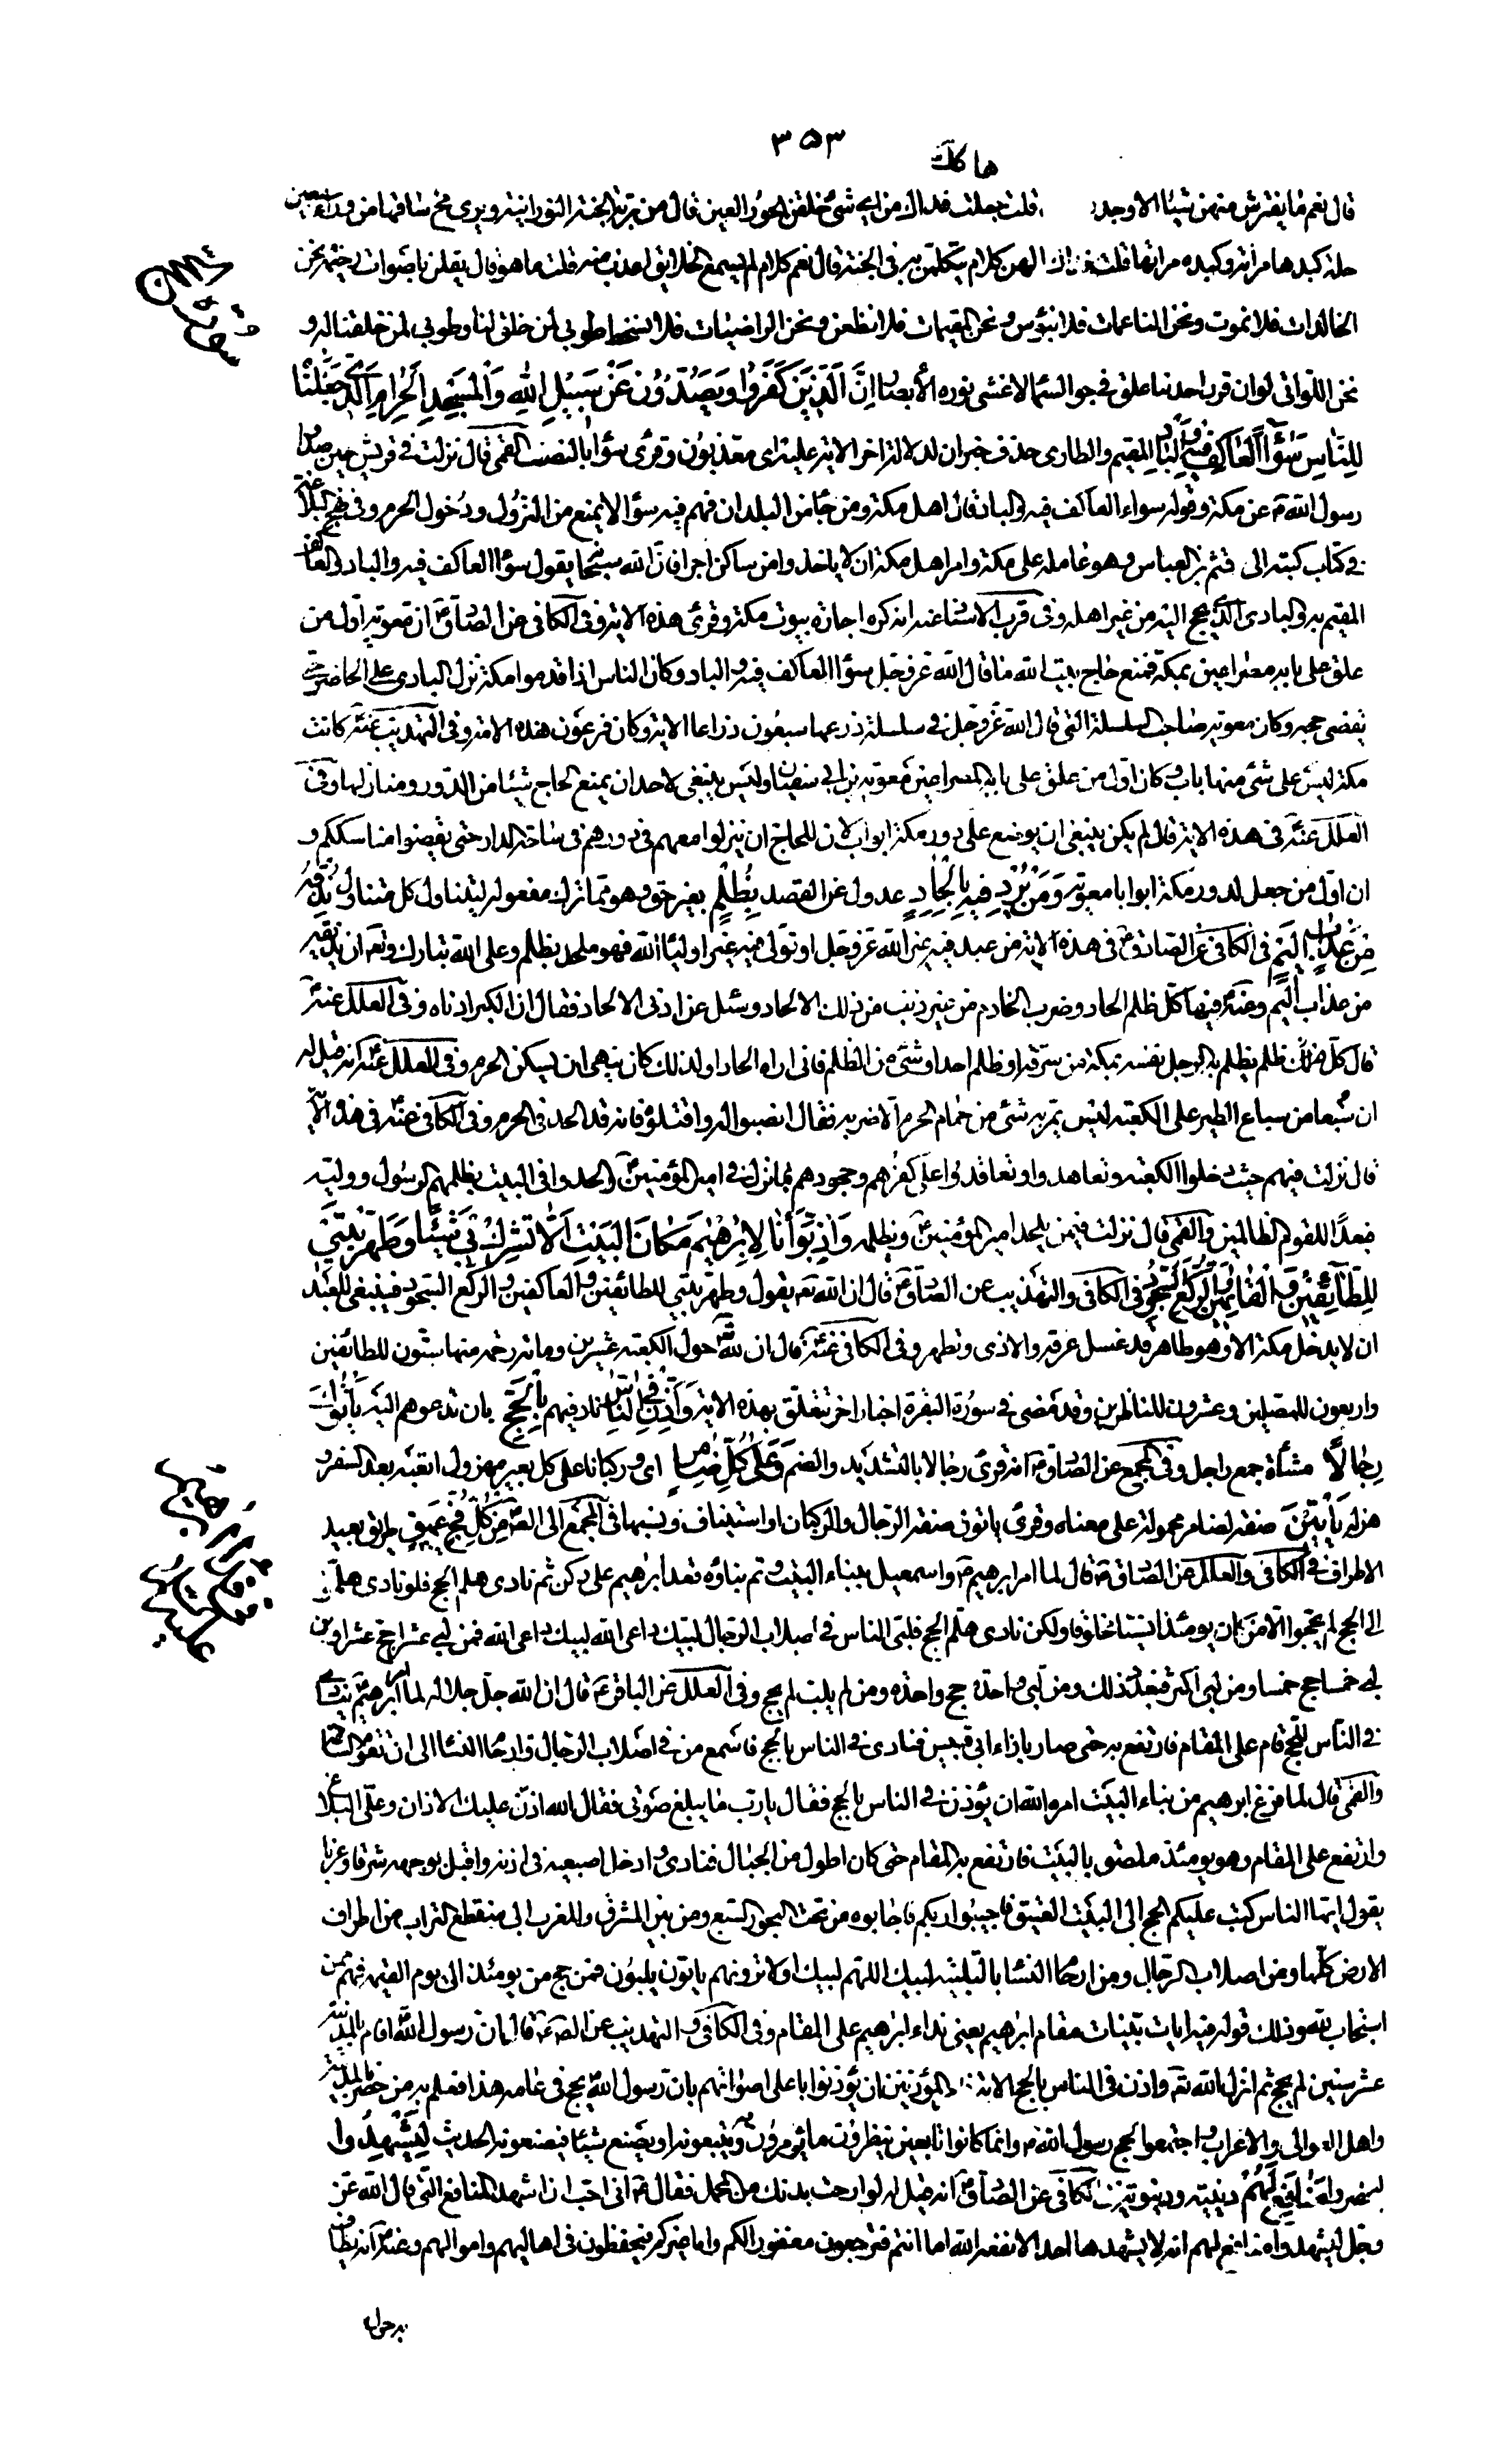 ٣٥٣
ها كك
قال نعم ما يفترش منهن شيئا الا وجدها قلت جعلت فداك من اي شئ خلقن الحور العين قال من تربة الجنة النورانية ويرى مخ ساقها من وراء سبعين
حلة كبدها مرآته وكبده مرآتها قلت الهن كلام يتكلمن به في الجنة قال نعم كلام لم يسمع الخلايق اعذب منه قلت ما هو قال يقلن باصوات رخيمة نحن
الخالدات فلا نموت ونحن الناعمات فلا نبؤس ونحن المقيمات فلا نظعن ونحن الراضيات فلا نسخط طوبى لمن خلق لنا وطوبى لمن خلقنا له و
نحن اللواتي لو ان قرن احدنا علق في جو السماء لاغشى نوره الأبصار اِنَّ الَّذِينَ كَفَرُوا وَيَصُدُّونَ عَنْ سَبِيلِ اللهِ وَالْمَسْجِدِ الْحَرَامِ الَّذِي جَعَلْنَاهُ
لِلنَّاسِ سَوَآءً الْعَاكِفُ فِيهِ وَالْبَادِ المقيم والطارى حذف خبر ان لدلالة اخر الاية عليه اى معذبون وقرئ سواء بالنصب القمي قال نزلت في قريش حين صدوا
رسول الله ص عن مكة وقوله سواء العاكف فيه والباد قال اهل مكة ومن جاء من البلدان فهم فيه سواء لا يمنع من النزول ودخول الحرم وفي نهج البلاغة
في كتاب كتبه الى قثم بن العباس وهو عامله على مكة وامر اهل مكة ان لا ياخذوا من ساكن اجرا فان الله سبحانه يقول سواء العاكف فيه والباد والعاكف
المقيم به والبادى الذي يحج اليه من غير اهله وفي قرب الاسناد عنه انه كره اجارة بيوت مكة وقرئ هذه الاية وفي الكافي عن الصادق ع ان معوية اول من
علق على بابه مصراعين بمكة فمنع حاج بيت الله ما قال الله عز وجل سواء العاكف فيه والباد وكان الناس اذا قدموا مكة نزل البادى على الحاضر حتى
يقضى حجه وكان معوية صاحب السلسلة التي قال الله عز وجل في سلسلة ذرعها سبعون ذراعا الاية وكان فرعون هذه الامة وفي التهذيب عنه ع كانت
مكة ليس على شئ منها باب وكان اول من علق على بابه المصراعين معوية بن ابي سفيان وليس ينبغى لاحد ان يمنع الحاج شيئا من الدور ومنازلها وفي
العلل عنه ع في هذه الاية قال لم يكن ينبغى ان يوضع على دور مكة ابواب لان للحاج ان ينزلوا معهم في دورهم في ساحة الدار حتى يقضوا مناسككم و
ان اول من جعل لدور مكة ابوابا معوية وَمَنْ يُرِدْ فِيهِ بِاِلْحَادٍ عدول عن القصد بِظُلْمٍ بغير حق وهو مما ترك مفعوله ليتناول كل متناول نُذِقْهُ
مِنْ عَذَابٍ اَلِيمٍ في الكافي عن الصادق ع في هذه الاية من عبد فيه غير الله عز وجل او تولى فيه غير اولياء الله فهو ملحد بظلم وعلى الله تبارك وتع ان يذيقه
من عذاب أليم وعنه ع فيها كل ظلم الحاد وضرب الخادم من غير ذنب من ذلك الالحاد وسئل عن ادنى الالحاد فقال ان الكبر ادناه وفي العلل عنه ع
قال كل ظلم يظلم به الرجل نفسه بمكة من سرقة او ظلم احد او شئ من الظلم فاني اراه الحادا ولذلك كان ينهى ان يسكن الحرم وفي العلل عنه ع انه قيل له
ان سبعا من سباع الطير على الكعبة ليس يمر به شئ من حمام الحرم الا ضربه فقال انصبوا له واقتلوه فانه قد الحد في الحرم وفي الكافي عنه ع في هذه الاية
قال نزلت فيهم حيث دخلوا الكعبة وتعاهدوا وتعاقدوا على كفرهم وجحودهم بما نزل في امير المؤمنين ع والحدوا في البيت بظلمهم الرسول ووليه
فبعدًا للقوم الظالمين والقمي قال نزلت فيمن يلحد امير المؤمنين ع ويظلمه وَاِذْ بَوَّأْنَا لِاِبْرٰهِيمَ مَكَانَ الْبَيْتِ اَلَّا تُشْرِكْ بِي شَيْئًا وَطَهِّرْ بَيْتِيَ
لِلطَّآئِفِينَ وَالْقَائِمِينَ وَالرُّكَّعِ السُّجُودِ في الكافي والتهذيب عن الصادق ع قال ان الله تع يقول وطهر بيتي للطائفين والعاكفين والركع السجود فينبغى للعبد
ان لا يدخل مكة الا وهو طاهر قد غسل عرقه والاذى وتطهر وفي الكافي عنه ع قال ان لله حول الكعبة عشرين ومائة رحمة منها ستون للطائفين
واربعون للمصلين وعشرون للناظرين وقد مضى في سورة البقرة اخبار اخر تتعلق بهذه الاية وَاَذِّنْ فِي النَّاسِ ناد فيهم بِالْحَجِّ بان تدعوهم اليه يَأْتُوكَ
رِجَالًا مشاة جمع راجل وفي المجمع عن الصادق ع انه قرئ رجالا بالتشديد والضم وَعَلٰى كُلِّ ضَامِرٍ اى وركبانا على كل بعير مهزول اتعبه بعد السفر و
هزله يَأْتِينَ صفة لضامر محمولة على معناه وقرئ ياتون صفة الرجال والركبان او استيناف ونسبها في المجمع الى الص ع مِنْ كُلِّ فَجٍّ عَمِيقٍ طريق بعيد
الاطراف في الكافي والعلل عن الصادق ع قال لما امر ابرهيم ع واسمعيل ببناء البيت وتم بناؤه قعد ابرهيم على ركن ثم نادى هلم الحج فلو نادى هلموا
الى الحج لم يحجوا الا من كان يومئذ انسيا مخلوقا ولكن نادى هلم الحج فلبى الناس في اصلاب الرجال لبيك داعى الله لبيك داعى الله فمن لبى عشرا حج عشرا ومن
لبى خمسا حج خمسا ومن لبى اكثر فبعدد ذلك ومن لبى واحدة حج واحدة ومن لم يلب لم يحج وفي العلل عن الباقر ع قال ان الله جل جلاله لما امر ابرهيم ينادى
في الناس للحج قام على المقام فارتفع به حتى صار بازاء ابي قبيس فنادى في الناس بالحج فاسمع من في اصلاب الرجال وارحام النساء الى ان تقوم الساعة
والقمي قال لما فرغ ابرهيم من بناء البيت امره الله ان يؤذن في الناس بالحج فقال يا رب ما يبلغ صوتى فقال الله اذن عليك الاذان وعلى البلاغ
وارتفع على المقام وهو يومئذ ملصق بالبيت فارتفع به المقام حتى كان اطول من الجبال فنادى وادخل اصبعيه في اذنيه واقبل بوجهه شرقا وغربا
يقول ايها الناس كتب عليكم الحج الى البيت العتيق فاجيبوا ربكم فاجابوه من تحت البحور السبع ومن بين المشرق والمغرب الى منقطع التراب من اطراف
الارض كلها ومن اصلاب الرجال ومن ارحام النساء بالتلبية لبيك اللهم لبيك اولا ترونهم ياتون يلبون فمن حج من يومئذ الى يوم القيمة فهم ممن
استجاب لله وذلك قوله فيه ايات بينات مقام ابرهيم يعنى نداء ابرهيم على المقام وفي الكافي والتهذيب عن الص ع قال ان رسول الله اقام بالمدينة
عشر سنين لم يحج ثم انزل الله تع واذن في الناس بالحج الاية المؤذنين ان يؤذنوا باعلى اصواتهم بان رسول الله يحج في عامه هذا فعلم به من حضر بالمدينة
واهل العوالي والاعراب واجتمعوا لحج رسول الله ص وانما كانوا تابعين ينظرون ما يؤمرون ويتبعونه او يصنع شيئا فيصنعونه الحديث لِيَشْهَدُوا
ليحضروا مَنَافِعَ لَهُمْ دينية ودنيوية في الكافي عن الصادق ع انه قيل له لو ارحت بدنك من المحمل فقال ع اني احب ان اشهد المنافع التي قال الله عز
وجل ليشهدوا منافع لهم انه لا يشهدها احد الا نفعه الله اما انتم فترجعون مغفورا لكم واما غيركم فيحفظون في اهاليهم واموالهم وعنه ع انه نظر